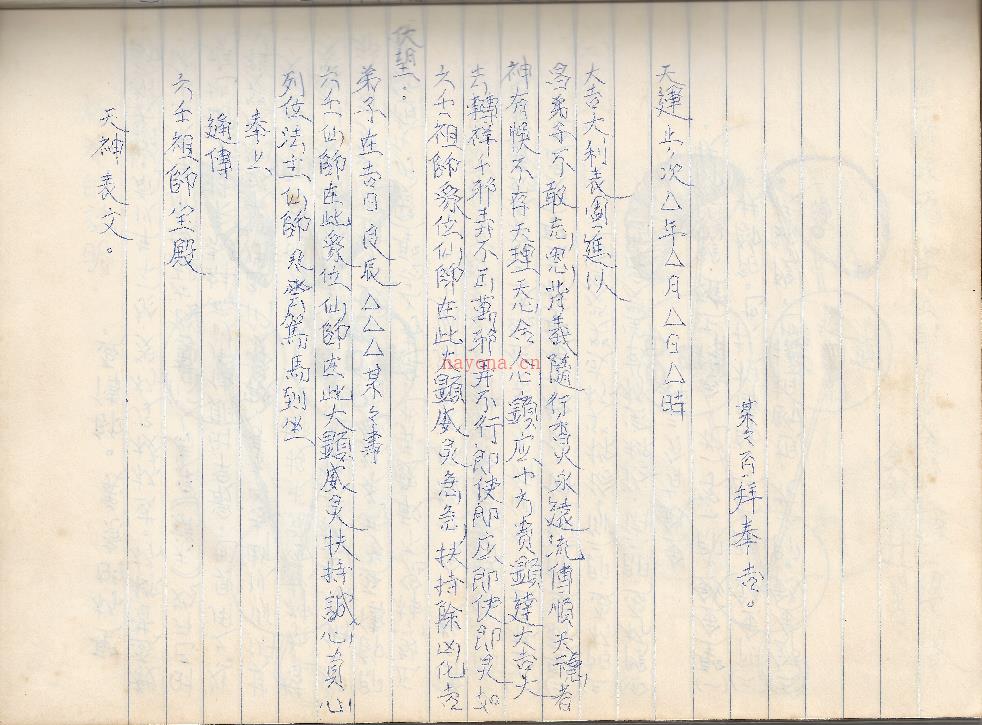 天神表文。
六壬祖師宝殿
通傳
奉上
列位法主仙師 飛雲駕馬到坐
六壬仙師在此眾位仙師在此大顯威灵扶持誠心真心
弟子在吉日良辰△△△某々壽
伏望:
六壬祖師眾位仙師在此大顯威灵急急扶持除凶化吉
去轉祥千邪義不正萬邪弄不行即使即应即使即灵如
神有悞不存天理天心合人心顯应十方貴顯達大吉大
為弟子不敢忘恩背義隨行香火永遠流傳順天德者
大吉大利表進以
天運上次△年△月△日△時
某々百拜奉壱。